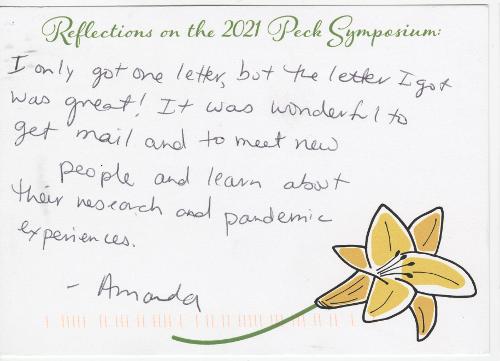 Reflections on the 2021 Peck Symposium:
I only got one letter, but the letter I got
was great! It was wonderful to
get mail and to meet new
people and learn about
their research and pandemic
experiences.
- Amanda